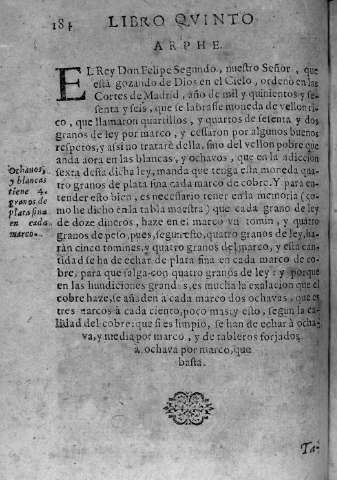 184 LIBRO QVINTO
ARPHE.
EL Rey Don Felipe Segundo, nuestro Señor, que
està gozando de Dios en el Cielo, ordenò en las
Cortes de Madrid, año de mil y quinientos y se-
senta y seis, que se labrasse moneda de vellon ri-
co, que llamaron quartillos, y quartos de sesenta y dos
granos de ley por marco, y cessaron por algunos buenos
respetos, y assi no tratarè della, sino del vellon pobre que
anda aora en las blancas, y ochavos, que en la adiccion
sexta desta dicha ley, manda que tenga esta moneda qua-
tro granos de plata fina cada marco de cobre. Y para en-
tender esto bien, es necesario tener en la memoria (co-
mo he dicho en la tabla nuestra) que cada grano de ley
de doze dineros, haze en el marco vn tomin, y quatro
granos de peso, pues, segun esto, quatro granos de ley, ha-
ràn cinco tomines, y quatro granos del marco, y esta can-
tidad se ha de echar de plata fina en cada marco de co-
bre, para que salga con quatro granos de ley: y porque
en las hundiciones grandes, es mucha la exalacion que el
cobre haze, se añaden à cada marco dos ochavas, que es
tres marcos à cada ciento, poco mas: y esto, segun la ca-
lidad del cobre: que si es limpio, se han de echar à ocha-
va, y media por marco, y de tableros forjados
à ochava por marco, que
basta.
Ochavos,
y blancas
tiene 4.
granos de
plata fina
en cada
marco.
Ta-